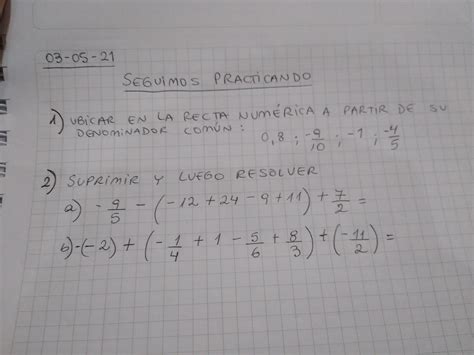 03-05-21
SEGUIMOS PRACTICANDO
1) UBICAR EN LA RECTA NUMÉRICA A PARTIR DE SU
DENOMINADOR COMÚN: 0,8 ; -9/10 ; -1 ; -4/5
2) SUPRIMIR Y LUEGO RESOLVER
a) -9/5 - (-12 + 24 - 9 + 11) + 7/2 =
b) -(-2) + (-1/4 + 1 - 5/6 + 8/3) + (-11/2) =